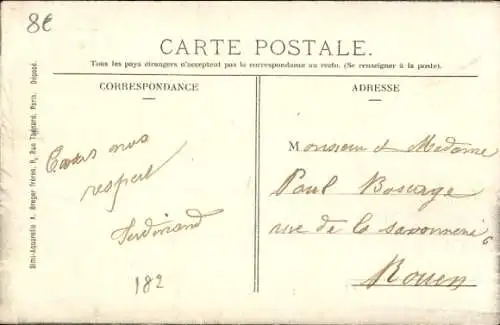 8€
CARTE POSTALE.
Tous les pays étrangers n'acceptent pas la correspondance au recto. (Se renseigner à la poste).
CORRESPONDANCE
ADRESSE
Tous nos
respect
Ferdinand
182
Monsieur et Madame
Paul Boscage
rue de la savonnerie 6
Rouen
Simi-Aquarelle A. Breger Frères, 9, Rue Thénard, Paris. Déposé.